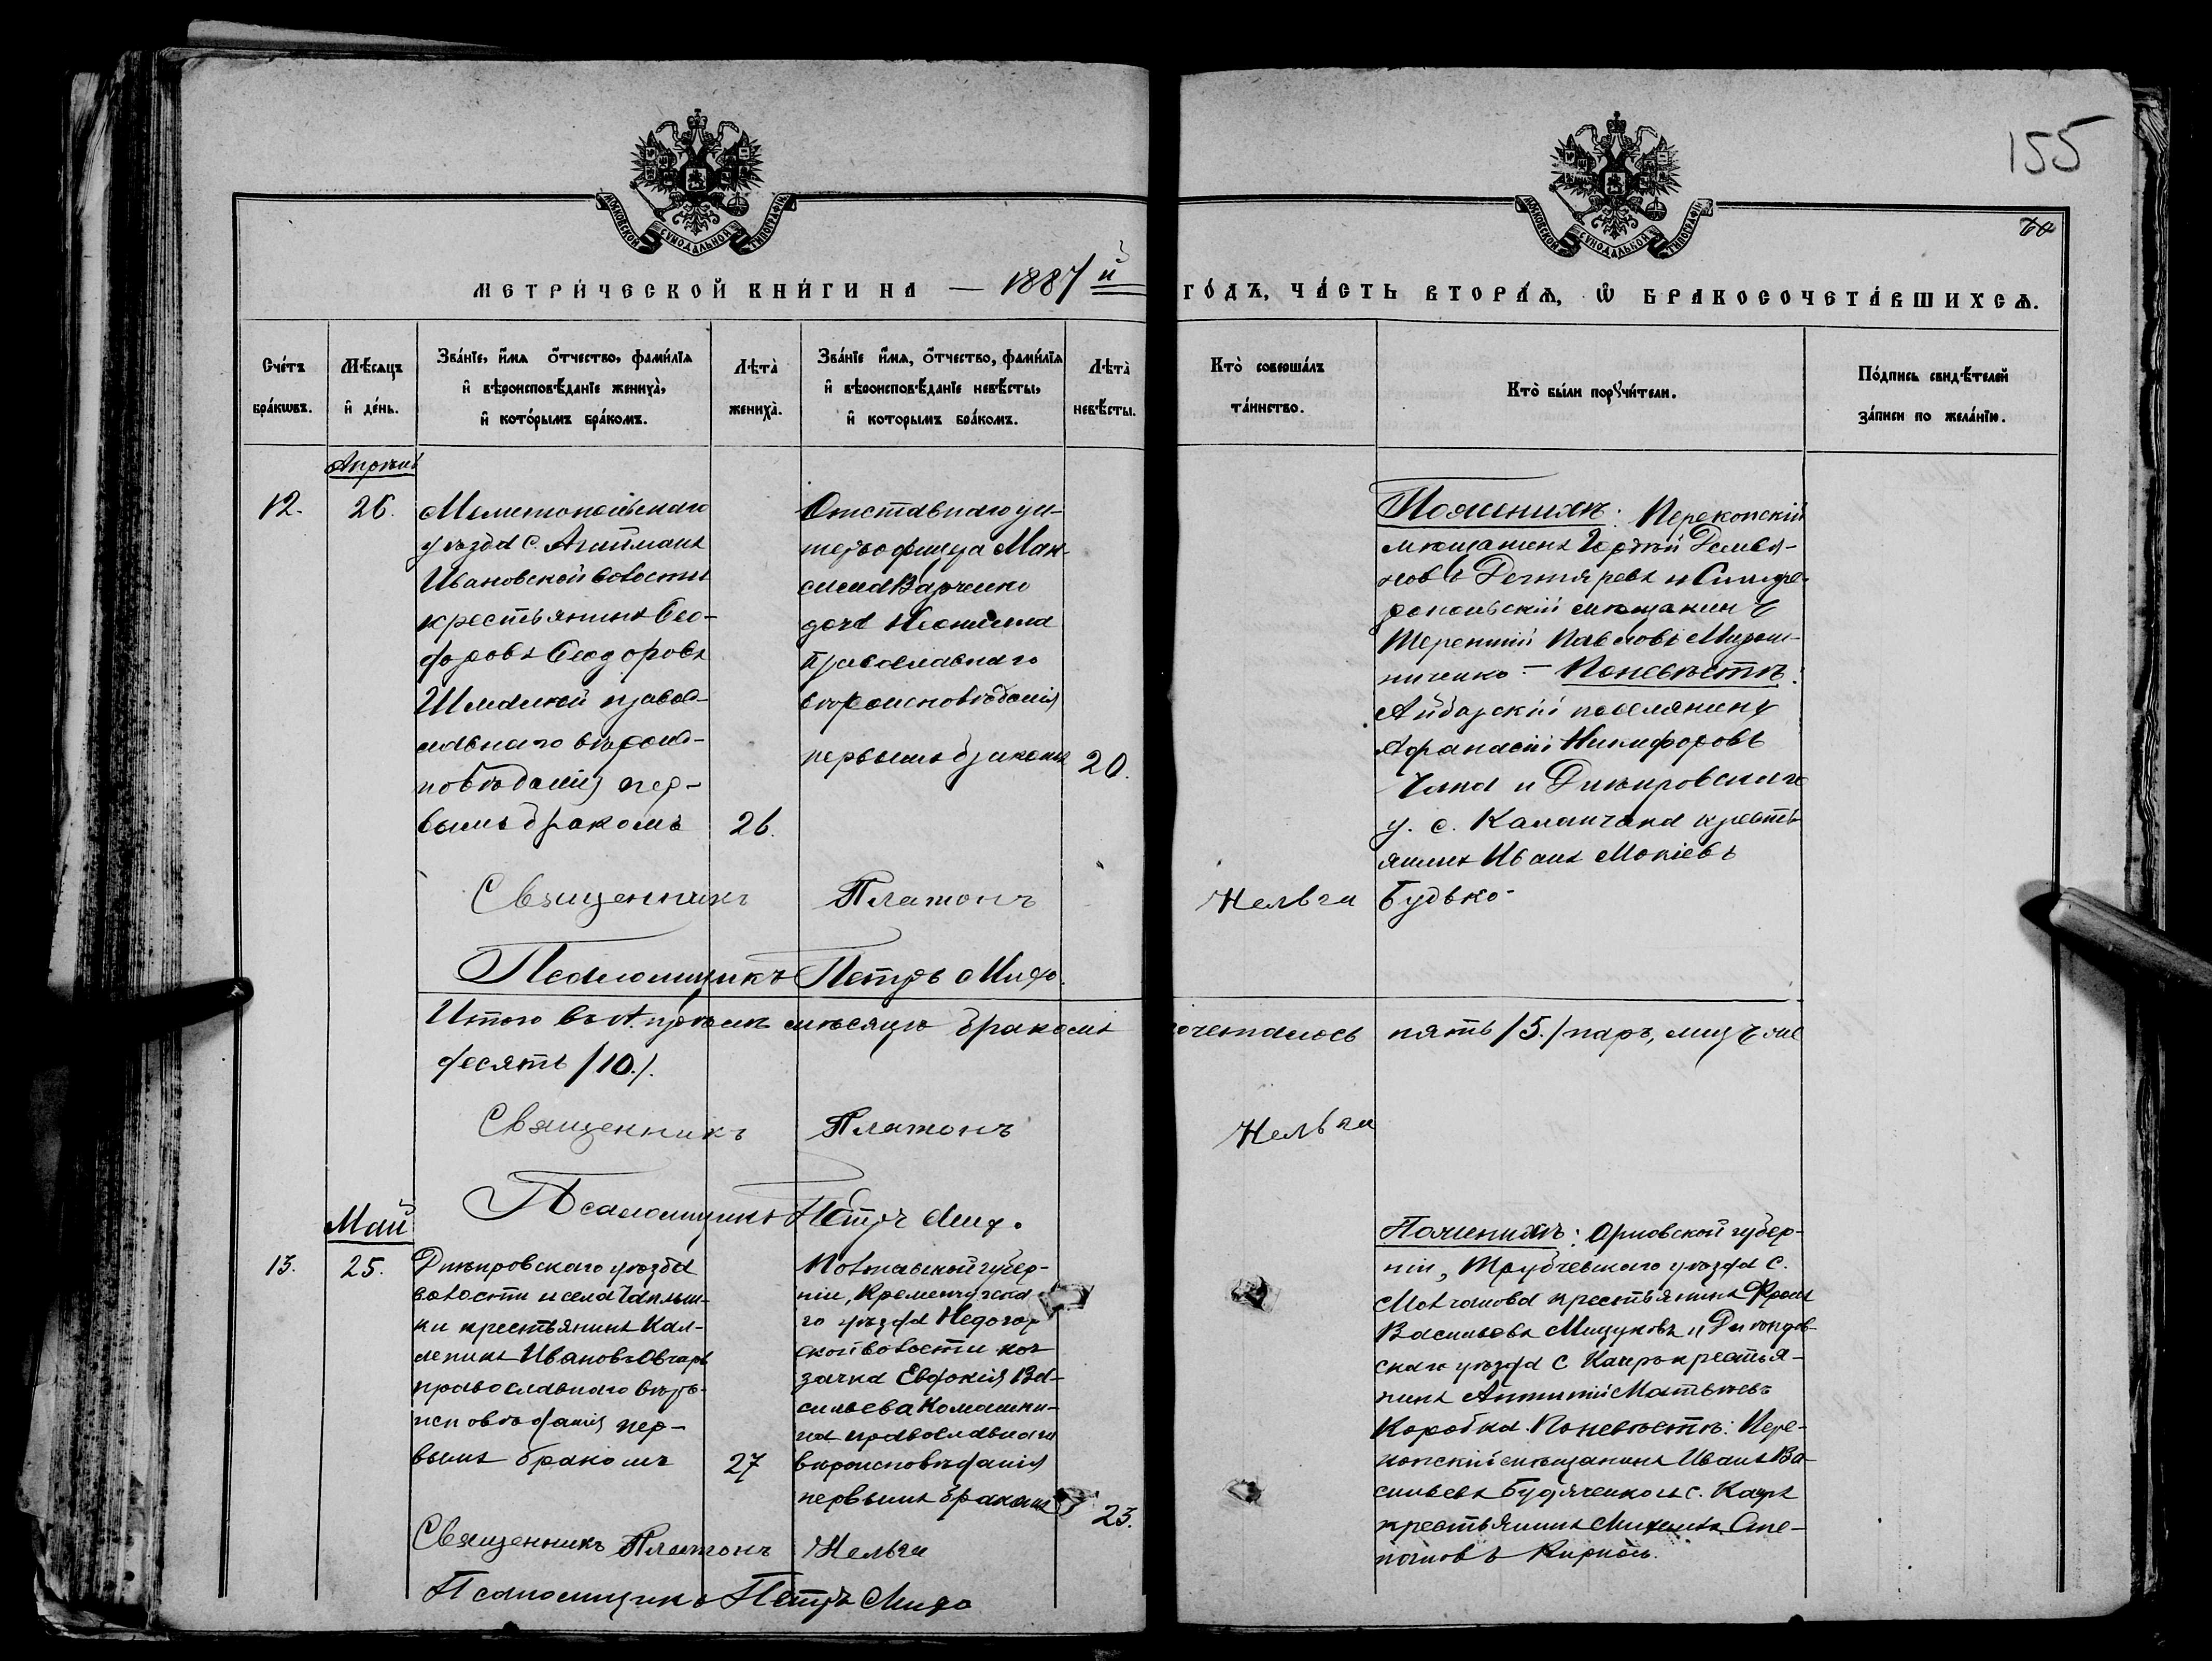 155
МОСКОВСКОЙ СУНОДАЛЬНОЙ ТИПОГРАФІИ
МОСКОВСКОЙ СУНОДАЛЬНОЙ ТИПОГРАФІИ
МЕТРИ́ЧЕСКОЙ КНИ́ГИ НА — 1887 й ГО́ДЪ, ЧА́СТЬ ВТОРА́Ѧ, Ѽ БРАКОСОЧЕТА́ВШИХСѦ.
Сче́тъ бра́кѡвъ.
Мѣ́сяцъ и҆ де́нь.
Зва́нїе, и҆́мя ѻ҆́тчество, фами́лїя и҆ вѣроисповѣ́данїе жениха̀, и҆ кото́рымъ бра́комъ.
Лѣта̀ жениха̀.
Зва́нїе и҆́мя, ѻ҆́тчество, фами́лїя и҆ вѣроисповѣ́данїе невѣ́сты, и҆ которымъ бра́комъ.
Лѣта̀ невѣ́сты.
Кто̀ соверша́лъ та́инство.
Кто̀ бы́ли порꙋчи́тели.
По́дпись свидѣ́телей за́писи по жела́нїю.
Апрѣль
12.
26.
Мелитопольскаго
уѣзда с. Агаймана
Ивановской волости
крестьянинъ Ѳео-
Ѳеодоровъ
правос-
лавнаго вѣроис-
повѣданія пер-
вымъ бракомъ
26.
Отставнаго ун-
теръ офицера Мак-
сима Варченко
дочь Неонилла
православнаго
вѣроисповѣданія
первымъ бракомъ
20.
По женихѣ: Перекопскій
мѣщанинъ Гордѣй Демья-
новъ Дегтяревъ и Симфе-
ропольскій мѣщанинъ
Терентій Павловъ Мирош-
ниченко — По невѣстѣ:
Айбарскій поселянинъ
Афанасій Никифоровъ
и Днѣпровскаго
у. с. Каланчака кресть
янинъ Иванъ Мокіевъ
Будько
Священникъ Платонъ Нельга
Псаломщикъ Петръ
Итого въ Апрѣлѣ мѣсяцѣ бракомъ сочеталось пять /5./ паръ, лицъ же
десять /10./.
Священникъ Платонъ Нельга
Псаломщикъ Петръ
Май
13.
25.
Днѣпровскаго уѣзда
волости и села Чаплын-
ки крестьянинъ Кал-
леникъ Ивановъ Овчаръ
православнаго вѣро-
исповѣданія пер-
вымъ бракомъ
27
Полтавской губер-
ніи, Кременчугска
го уѣзда Недогар
ской волости коз
зачка Евдокія Ва-
сильева Комашки-
на православнаго
вѣроисповѣданія
первымъ бракомъ
23.
По женихѣ: Орловской губер-
ніи, Трубчевскаго уѣзда с.
Молчанова крестьянинъ Фролъ
Васильевъ Мищуковъ и Днѣпров-
скаго уѣзда с Каиръ крестья-
нинъ Антипій Матвѣевъ
Коробка. По невѣстѣ: Пере-
копскій мѣщанинъ Иванъ Ва-
сильевъ Будяченко и с. Каиръ
крестьянинъ
Священникъ Платонъ Нельга
Псаломщикъ Петръ